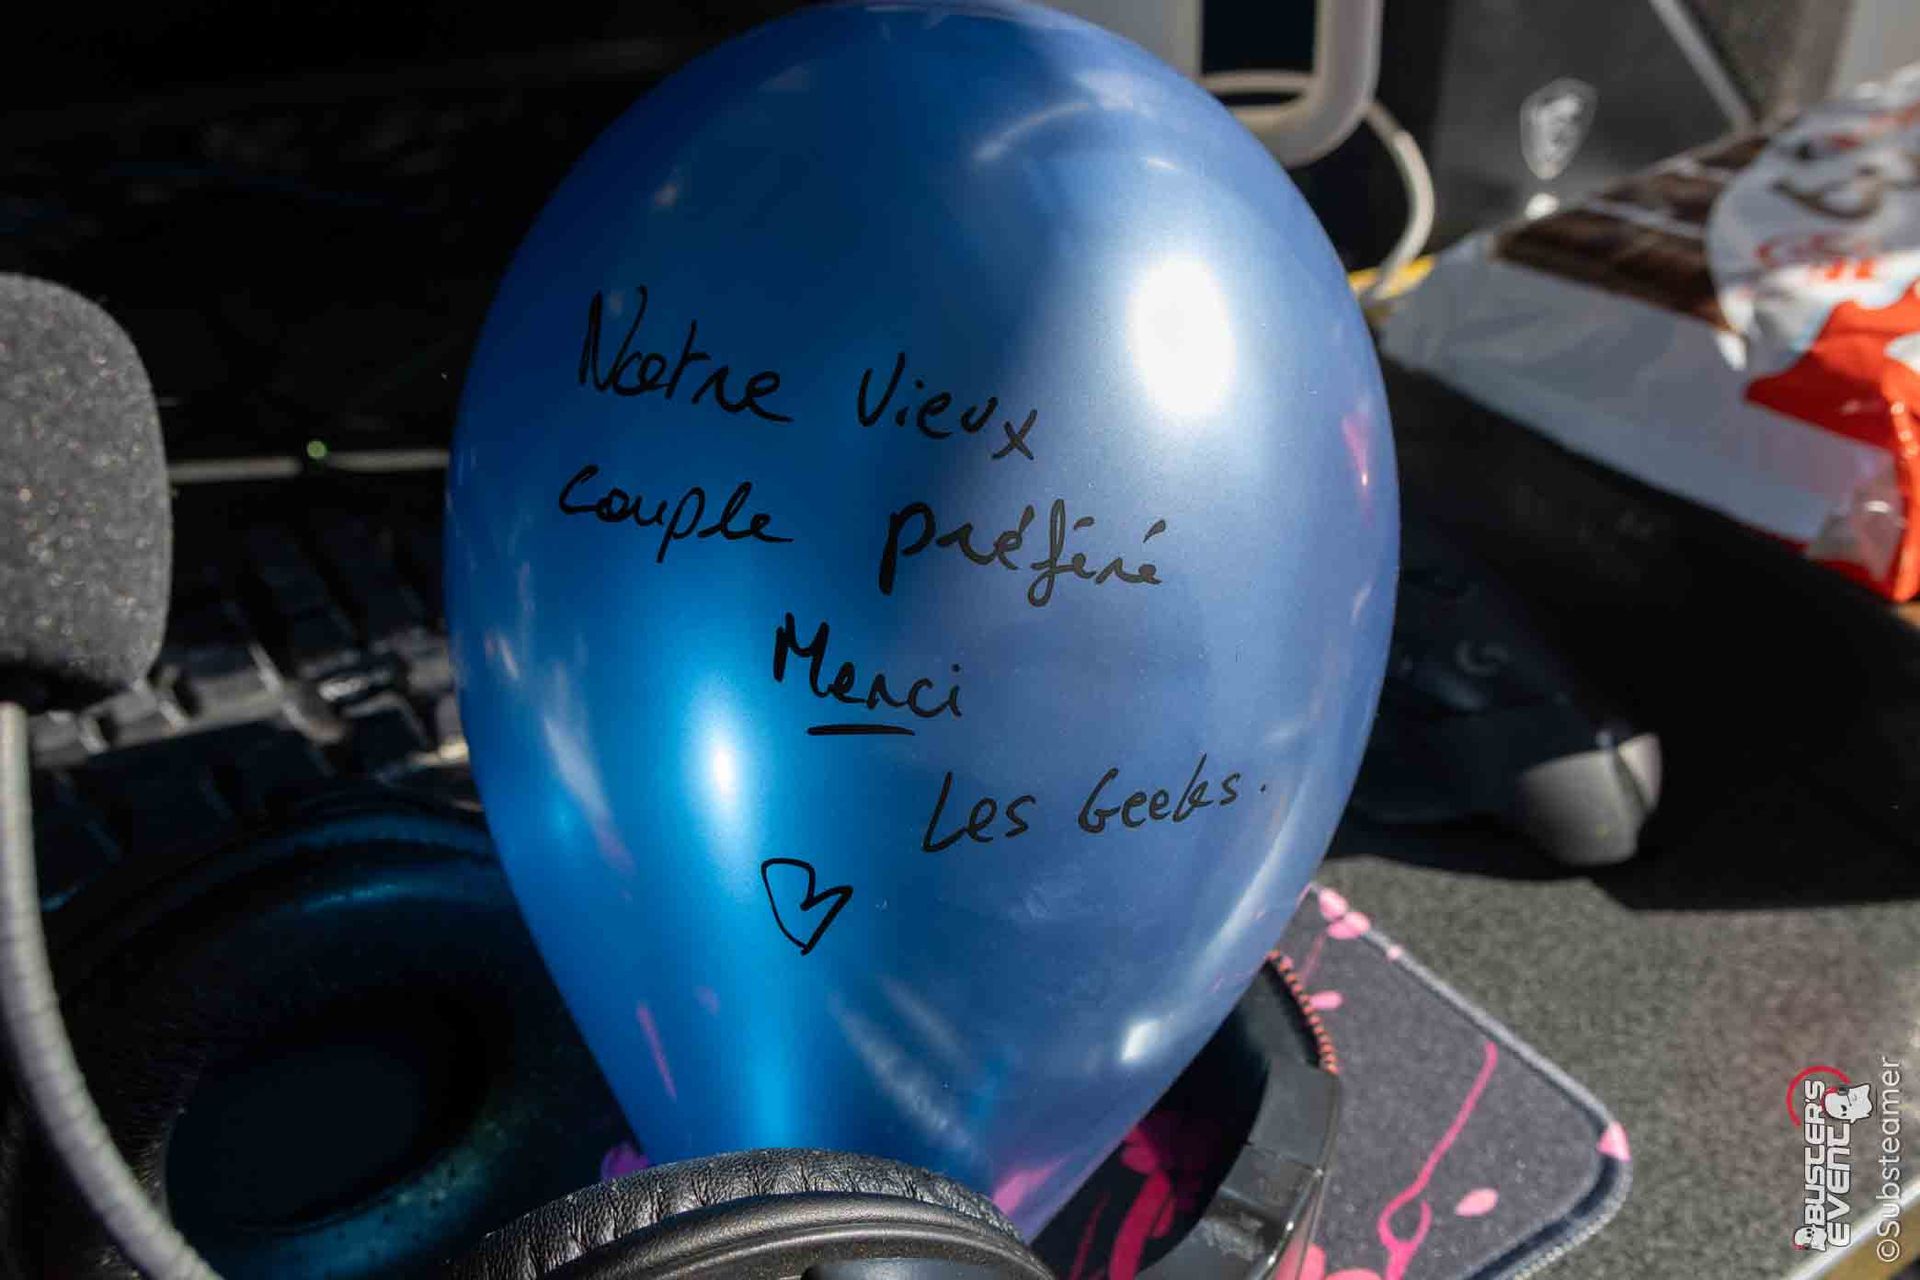 Notre Vieux
couple préféré
Merci
Les Geeks.
BUSTER'S
EVENT
©Substeamer